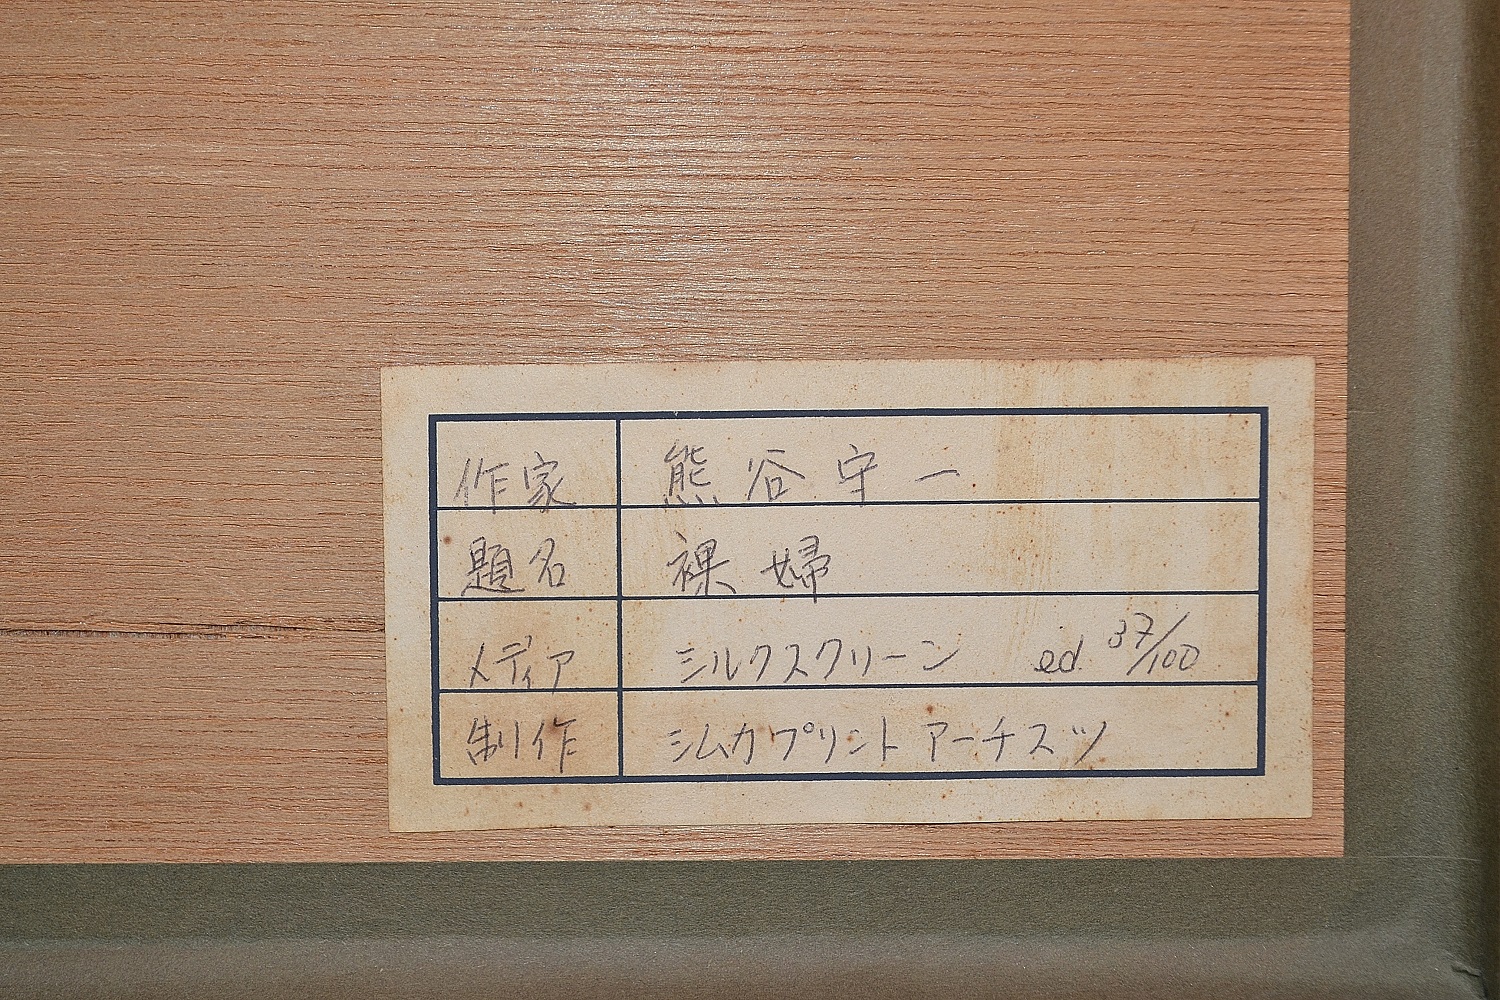 作家 熊谷守一
題名 裸婦
メディア シルクスクリーン ed. 37/100
制作 シムカプリントアーチスツ